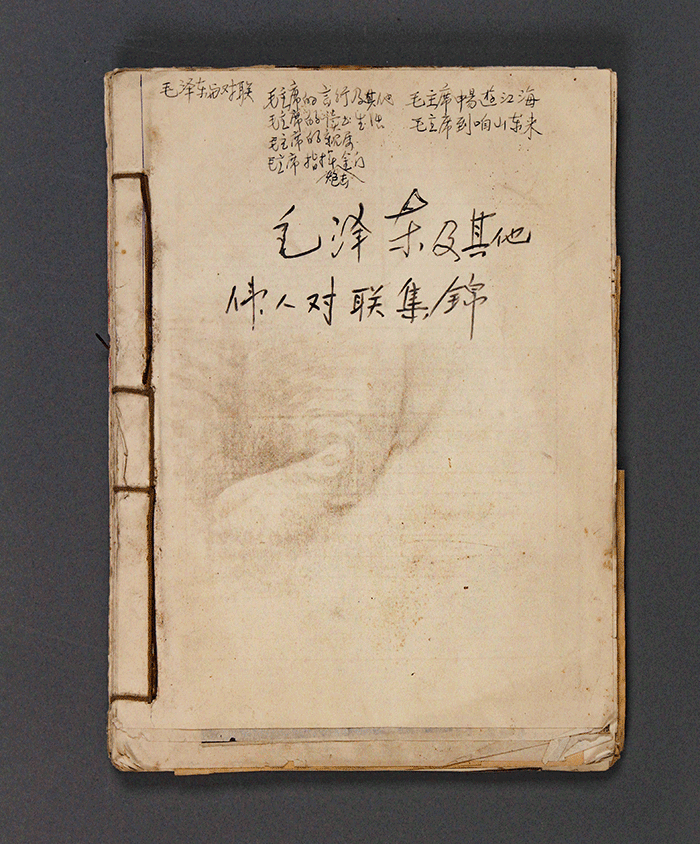 毛泽东对联
毛主席的言行及其他
毛主席的读书生活
毛主席的亲属
毛主席指挥金门
炮击
毛主席畅遊江海
毛主席到咱山东来
毛泽东及其他
伟人对联集錦